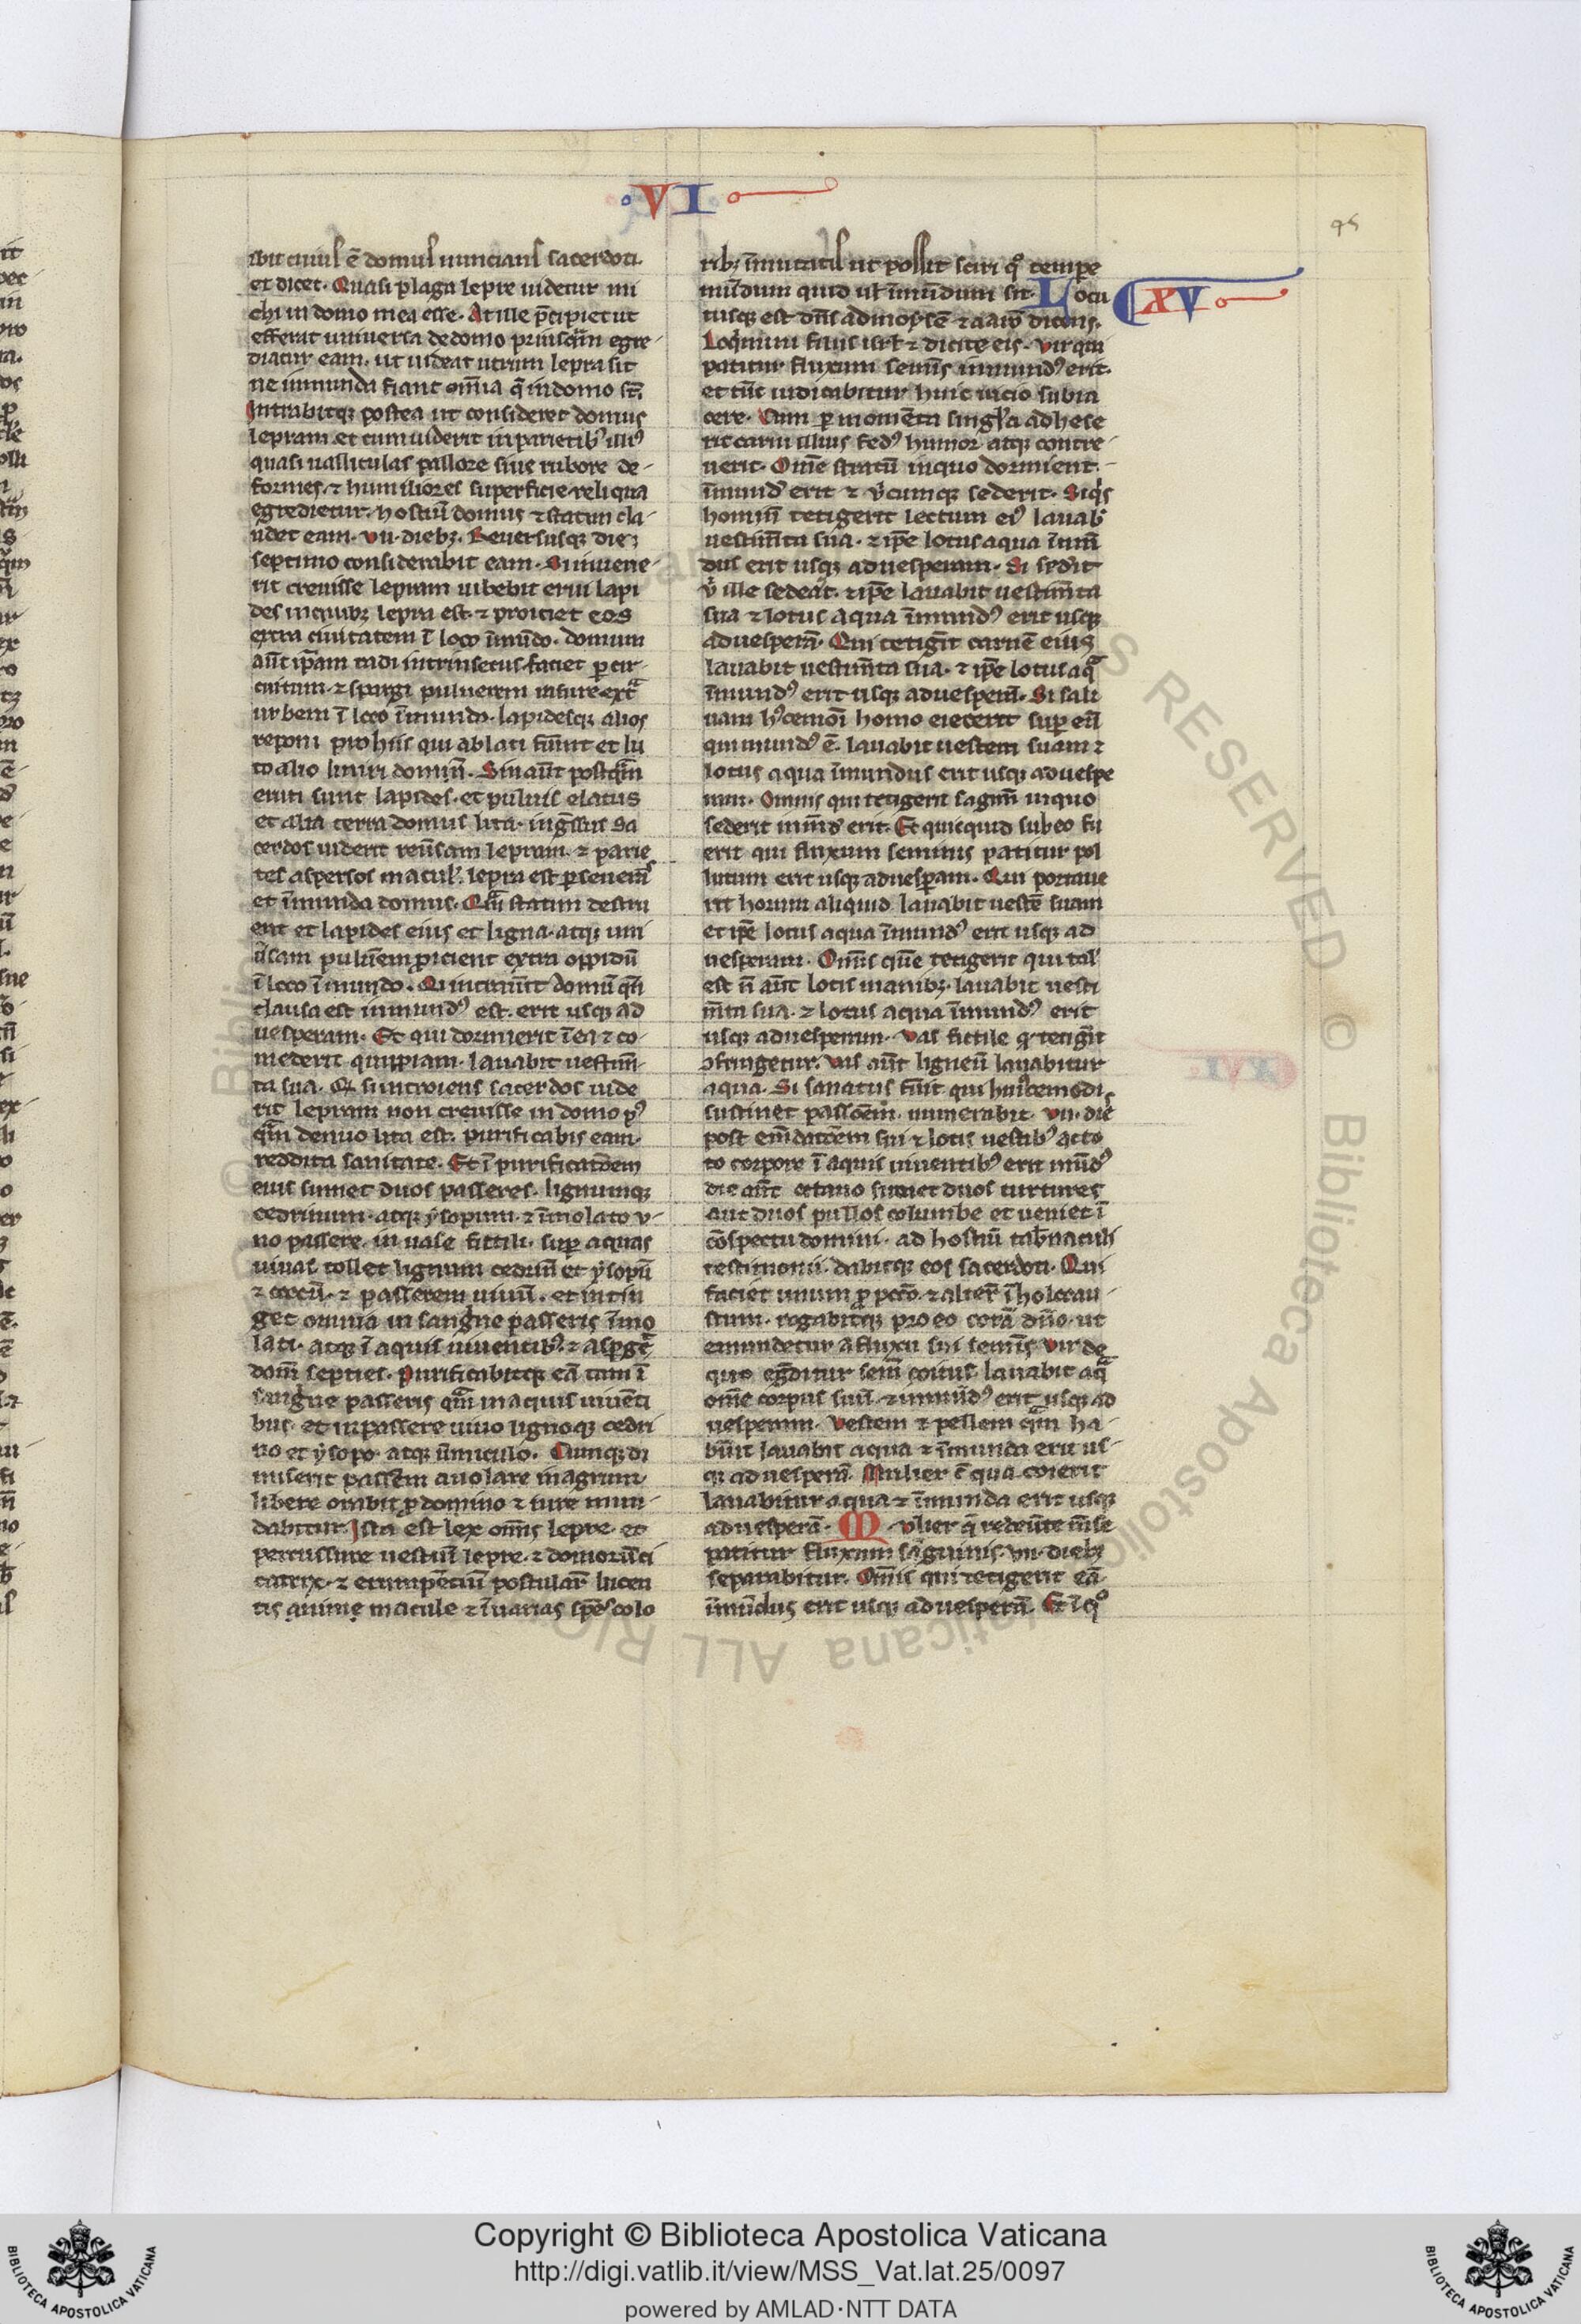 VI
95
ibit cuius ē domus nuncians sacerdoti.
et dicet. Quasi plaga lepre uidetur mi
chi in domo mea esse. At ille p̄cipiet ut
efferāt uniuersa de domo priusqᷓm egre-
diatur eam. ut uideat utrum lepra sit
ne inmunda fiant om̄ia q̄ in domo st̄.
Intrabitqꝫ postea ut consideret domus
lepram. et cum uiderit in parietibꝰ illiꝰ
quasi ualliculas pallore siue rubore de-
formes. ⁊ humiliores superficie reliqua
egredietur. hostiū domus ⁊ statim cla-
udet eam. vii. diebꝫ. Reuersusqꝫ die
septimo considerabit eam. Si inuene-
rit creuisse lepram iubebit erui lapi
des in quibꝫ lepra est. ⁊ proiciet eos
extra ciuitatem ī loco īmūdo. domum
aūt ip̄am radi intrinsecus faciet ꝑ cir-
cuitum. ⁊ spargi puluerem rasure extᷓ
urbem ī loco īmundo. lapidesqꝫ alios
reponi pro hiis qui ablati fūint et lu
to alio liniri domū. Sin aūt postqᷓm
eruti sunt lapides. et puluis elatus
et alia terra domus lita. ingr̄ssus sa
cerdos uiderit reūsam lepram. ⁊ parie
tes aspersos maculꝰ. lepra est ꝑseuerās
et īmunda domus. Qᷓm statim destru
ent et lapides eius et ligna. atqꝫ uni
ūsam puluēem proicient extra oppidū
ī loco īmundo. Qui intraūit domū qn̄
clausa est inmundꝰ est. erit usqꝫ ad
uesperam. Et qui dormierit ī ea ⁊ co-
mederit quippiam. lauabit uestim̄-
ta sua. Qd̄ si introiens sacerdos uide
rit lepram non creuisse in domo pꝰ
qᷓm denuo lita est. purificabis eam.
reddita sanitate. Et ī purificatōem
eius sumet duos passeres. lignumqꝫ
cedrinum. atqꝫ ysopum. ⁊ īmolato v-
no passere. in uase fictili. sup̄ aquas
uiuas tollet lignum cedrinū et ysopū
⁊ coccū. ⁊ passerem uiuū. et intin
get omnia in sang̍ne passeris īmo
lati. atqꝫ ī aquis uiuentibꝰ. ⁊ asꝑgēt
dom̄ septies. Purificabitqꝫ eā tam ī
sang̍ne passeris qᷓm in aquis uiuēti
bus. et in passere uiuo lignoqꝫ cedri
no et ysopo. atqꝫ ūmiculo. Cumqꝫ di
miserit passēm auolare in agrum
libere orabit ꝓ domino ⁊ iure mun-
dabitur. Ista est lex om̄is lepre. et
percussure uestiū lepre. ⁊ domorū. ci
catrix. ⁊ erumpētiū postularꝰ lucen
tis quinqꝫ macule ⁊ ī uarias sp̄es colo
ribꝫ īmutatis ut possit sciri qͦ tempe
mūdum quid ul̄ īmūdum sit. Locu
tusqꝫ est dn̄s ad moysē ⁊ aarō dicens.
Loq̍mini filiis isrl̄ ⁊ dicite eis. Vir qui
patitur fluxum semīs inmundꝰ erit.
et tūc iudicabitur huic uicio subia
cere. Cum ꝑ momēta singl̄a adhese
rit carni illius fedꝰ humor atqꝫ concre-
uerit. Om̄e stratū in quo dormierit.
īmundꝰ erit ⁊ v̍cumqꝫ sederit. Siq̍s
hominū tetigerit lectum eiꝰ lauabꝰ
uestim̄ta sua. ⁊ ip̄e lotus aqua īmū
dus erit usqꝫ ad uesperam. Si sederit
v̍ ille sederat. ⁊ ip̄e lauabit uestim̄ta
sua ⁊ lotus aqua īmundꝰ erit usqꝫ
ad uesperā. Qui tetigīt carnē eius
lauabit uestim̄ta sua. ⁊ ip̄e lotus aqᷓ
īmundꝰ erit usqꝫ ad uesperā. Si sali
uam hꝰcemōi homo eiecerit sup̄ eū
qui mundꝰ ē. lauabit uestem suam ⁊
lotus aqua īmundus erit usqꝫ ad uespe
ram. Omnis qui tetigerit sagm̄ in quo
sederit inmūdꝰ erit. Et quicquid sub eo fu
erit qui fluxum seminis patitur pol
lutum erit usqꝫ ad uesꝑam. Qui portaue
rit horum aliquid lauabit uestē suam
et ip̄e lotus aqua īmundꝰ erit usqꝫ ad
uesperam. Omīs quē tetigerit qui talꝰ
est n̄ aūt lotis manibꝫ. lauabit uesti
m̄ta sua. ⁊ lotus aqua īmundꝰ erit
usqꝫ ad uesperam. Vas fictile qͦ tetigīt
ꝯfringetur. Vas aūt ligneū lauabitur
aqua. Si sanatus fūit qui huiꝰcemodi
sustinet passōem. numerabit. vii. dies
post emūdatōem sui ⁊ lotis uestibꝰ ac to
to corpore ī aquis uiuentibꝰ erit mūdꝰ
die aūt octauo sumet duos turtures
aut duos pullos columbe et ueniet ī
cōspectu domini. ad hostiū tab̄naculi
testimonii. dabitqꝫ eos sacerdoti. Qui
faciet unum ꝓ pccō. ⁊ alterū ī holocau-
stum. rogabitqꝫ pro eo corā dn̄o. ut
emundetur a fluxu sui semīs. Vir de
quo eḡditur sem̄ coitus lauabit aqᷓ
om̄e corpus suū. ⁊ inmūdꝰ erit usqꝫ ad
uesperam. Vestem ⁊ pellem qᷓm ha-
būit lauabit aqua ⁊ īmunda erit us-
qꝫ ad uesperā. Mulier c̄ qua coierit
lauabitur aqua ⁊ īmunda erit usqꝫ
ad uesperā. Mulier q̄ redeūte mēse
patitur fluxum sāguinis. vii. diebꝫ
separabitur. Om̄is qui tetigerit eā
īmūdus erit usqꝫ ad uesperā. Et ī qͦ
XV
Copyright © Biblioteca Apostolica Vaticana
http://digi.vatlib.it/view/MSS_Vat.lat.25/0097
powered by AMLAD·NTT DATA